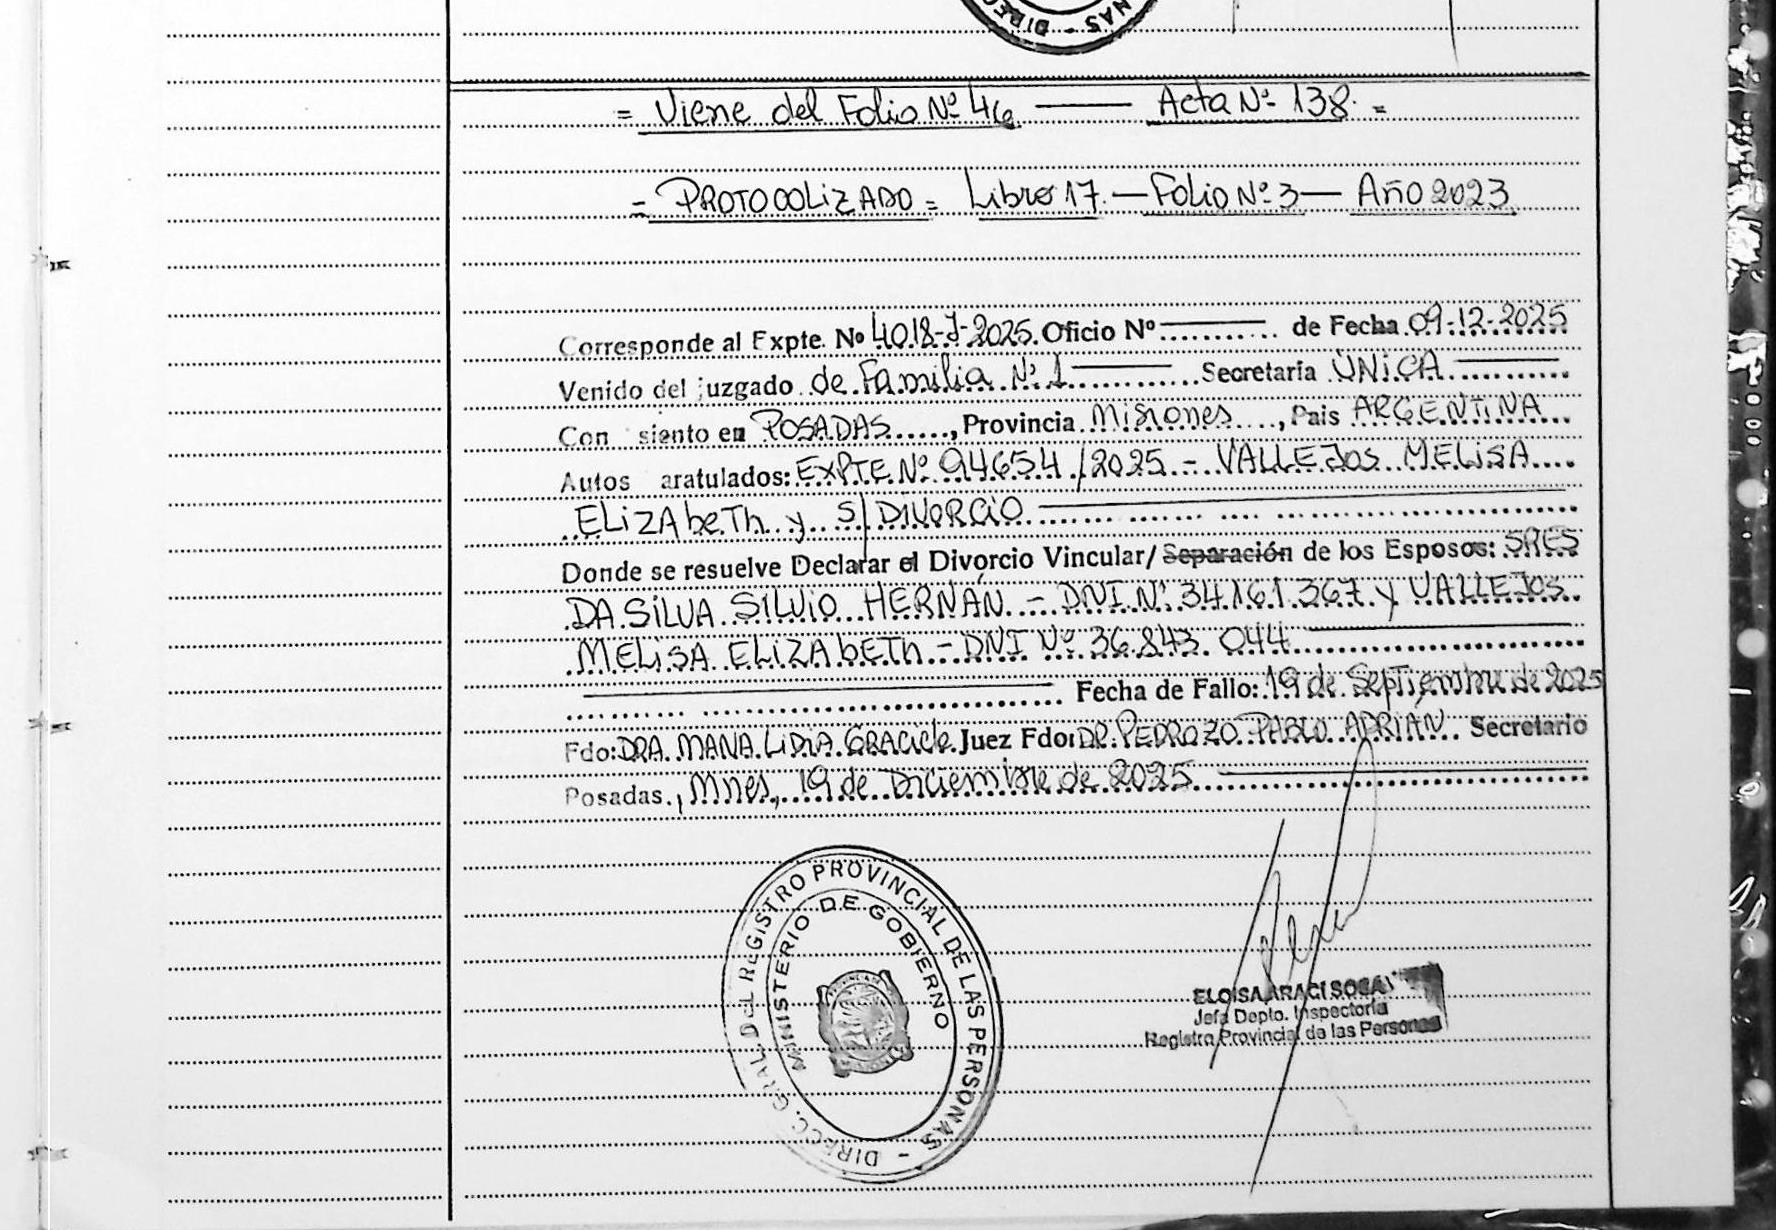 DIREC
NAS -
= Viene del Folio Nº 46 —— Acta Nº 138 =
= PROTOCOLIZADO = Libro 17 — Folio Nº 3 — Año 2023
Corresponde al Expte. Nº 4018-J-2025. Oficio Nº —— de Fecha 09-12-2025
Venido del juzgado de Familia Nº 1 —— Secretaria ÚNICA ——
Con siento en POSADAS, Provincia Misiones, Pais ARGENTINA
Autos aratulados: EXPTE Nº 94654/2025 - VALLEJOS MELISA
ELIZAbeTh y S/ DIVORCIO ——
Donde se resuelve Declarar el Divorcio Vincular/ Separación de los Esposos: SRES
DA SILVA SILVIO HERNÁN - DNI Nº 34.161.367 y VALLEJOS
MELISA ELIZAbeTh - DNI Nº 36.843.044 ——
—— Fecha de Fallo: 19 de Septiembre de 2025
Fdo: DRA. Juez Fdo: DR. PEDROZO PABLO ADRIÁN Secretario
Posadas, Mnes, 19 de Diciembre de 2025 ——
DIRECC. GRAL. DEL REGISTRO PROVINCIAL DE LAS PERSONAS -
MINISTERIO DE GOBIERNO
ELOISA ARACI SOSA
Jefa Depto. Inspectoria
Registro Provincial de las Personas